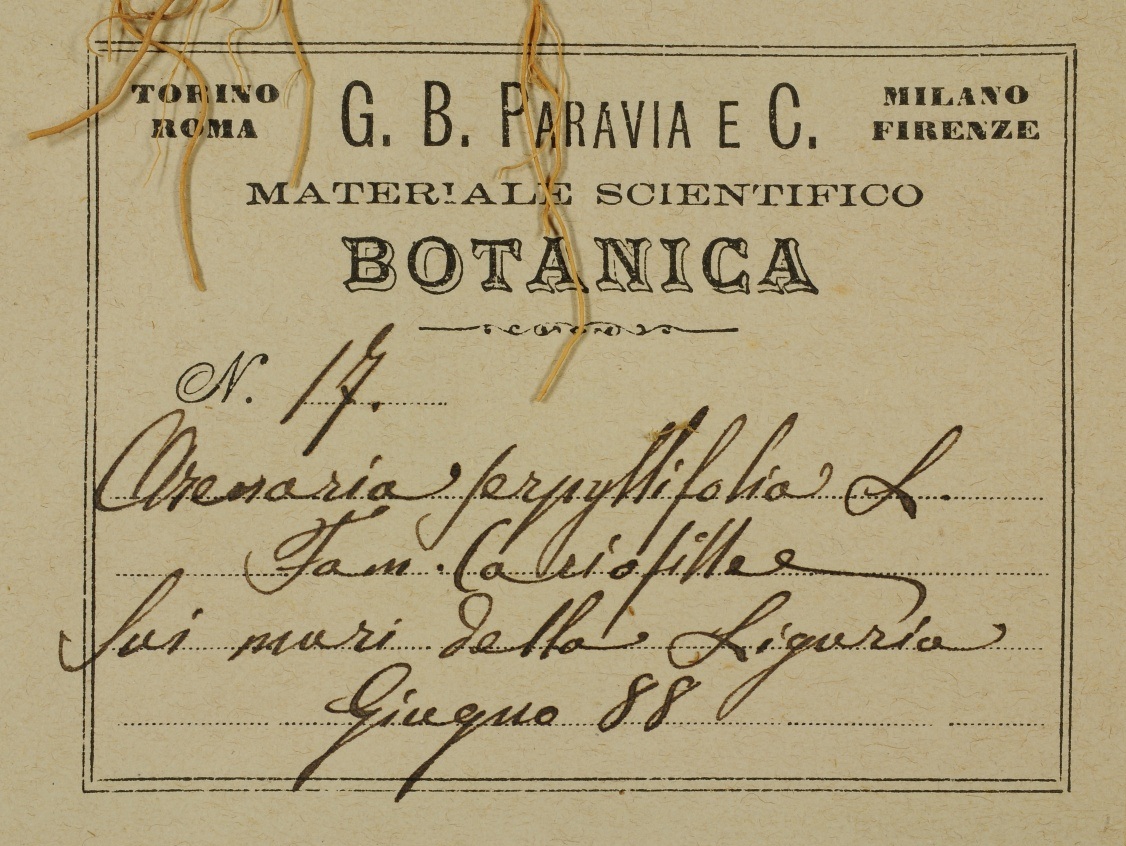 TORINO
ROMA
G. B. PARAVIA E C.
MILANO
FIRENZE
MATERIALE SCIENTIFICO
BOTANICA
N. 17.
Arenaria serpyllifolia L.
Fam. Cariofillee
Sui muri della Liguria
Giugno 88